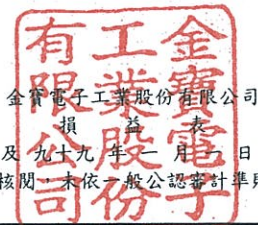 金寶電子工業股份有限公司
金寶電子工業股份有限公司
損益表
及九十九年一月一日
核閱,未依一般公認審計準則